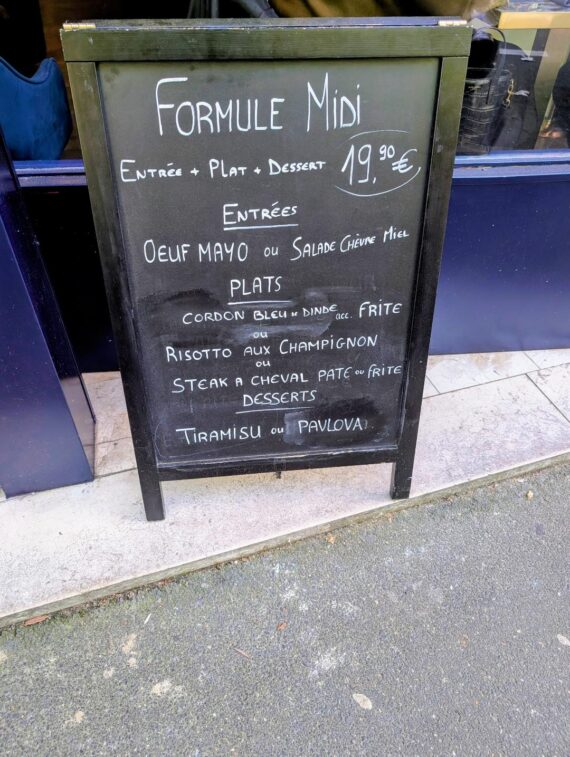 FORMULE MiDi
ENTRÉE + PLAT + DESSERT 19,90€
ENTRÉES
OEUF MAYO OU SALADE CHÈVRE MIEL
PLATS
CORDON BLEU DE DINDE acc. FRITE
OU
RISOTTO AUX CHAMPIGNON
OU
STEAK A CHEVAL PATE OU FRITE
DESSERTS
TIRAMISU OU PAVLOVA